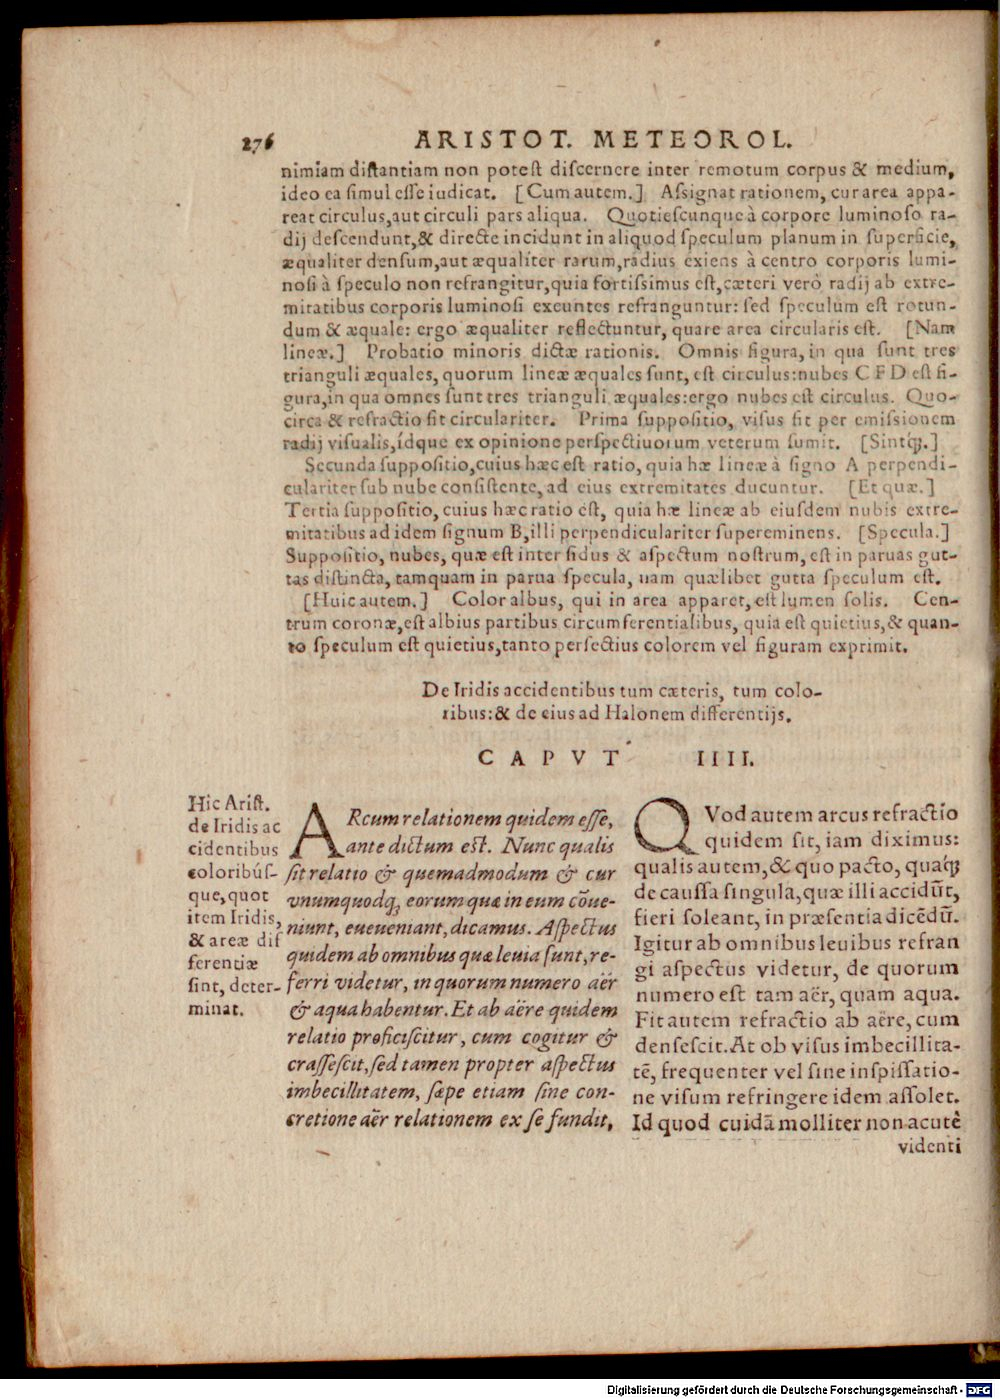 276 ARISTOT. METEOROL.
nimiam diſtantiam non poteſt diſcernere inter remotum corpus & medium,
ideo ea ſimul eſſe iudicat. [Cum autem.] Aſsignat rationem, cur area appa-
reat circulus, aut circuli pars aliqua. Quotieſcunque à corpore luminoſo ra-
dij deſcendunt, & directe incidunt in aliquod ſpeculum planum in ſuperficie,
æqualiter denſum, aut æqualiter rarum, radius exiens à centro corporis lumi-
noſi à ſpeculo non refrangitur, quia fortiſsimus eſt, cæteri verò radij ab extre-
mitatibus corporis luminoſi exeuntes refranguntur: ſed ſpeculum eſt rotun-
dum & æquale: ergo æqualiter reflectuntur, quare area circularis eſt. [Nam
lineæ.] Probatio minoris dictæ rationis. Omnis figura, in qua ſunt tres
trianguli æquales, quorum lineæ æquales ſunt, eſt circulus: nubes C F D eſt fi-
gura, in qua omnes ſunt tres trianguli æquales: ergo nubes eſt circulus. Quo-
circa & refractio fit circulariter. Prima ſuppoſitio, viſus fit per emiſsionem
radij viſualis, idque ex opinione perſpectiuorum veterum ſumit. [Sintq́;.]
Secunda ſuppoſitio, cuius hæc eſt ratio, quia hæ lineæ à ſigno A perpendi-
culariter ſub nube conſiſtente, ad eius extremitates ducuntur. [Et quæ.]
Tertia ſuppoſitio, cuius hæc ratio eſt, quia hæ lineæ ab eiuſdem nubis extre-
mitatibus ad idem ſignum B, illi perpendiculariter ſupereminens. [Specula.]
Suppoſitio, nubes, quæ eſt inter ſidus & aſpectum noſtrum, eſt in paruas gut-
tas diſtincta, tamquam in parua ſpecula, nam quælibet gutta ſpeculum eſt.
[Huic autem.] Color albus, qui in area apparet, eſt lumen ſolis. Cen-
trum coronæ, eſt albius partibus circumferentialibus, quia eſt quietius, & quan-
to ſpeculum eſt quietius, tanto perfectius colorem vel figuram exprimit.
De Iridis accidentibus tum cæteris, tum colo-
ribus: & de eius ad Halonem differentijs.
CAPVT IIII.
Hic Ariſt.
de Iridis ac
cidentibus
coloribúſ-
que, quot
item Iridis,
& areæ dif
ferentiæ
ſint, deter-
minat.
ARcum relationem quidem eſſe,
ante dictum eſt. Nunc qualis
ſit relatio & quemadmodum & cur
vnumquodq; eorum quæ in eum cōue-
niunt, eueueniant, dicamus. Aſpectus
quidem ab omnibus quæ leuia ſunt, re-
ferri videtur, in quorum numero aër
& aqua habentur. Et ab aëre quidem
relatio proficiſcitur, cum cogitur &
craſſeſcit, ſed tamen propter aſpectus
imbecillitatem, ſæpe etiam ſine con-
cretione aër relationem ex ſe fundit,
QVod autem arcus refractio
quidem ſit, iam diximus:
qualis autem, & quo pacto, quaq́;
de cauſſa ſingula, quæ illi accidūt,
fieri ſoleant, in præſentia dicēdū.
Igitur ab omnibus leuibus refran
gi aſpectus videtur, de quorum
numero eſt tam aër, quam aqua.
Fit autem refractio ab aëre, cum
denſeſcit. At ob viſus imbecillita-
tē, frequenter vel ſine inſpiſſatio-
ne viſum refringere idem aſſolet.
Id quod cuidā molliter non acutè
videnti
Digitalisierung gefördert durch die Deutsche Forschungsgemeinschaft - DFG